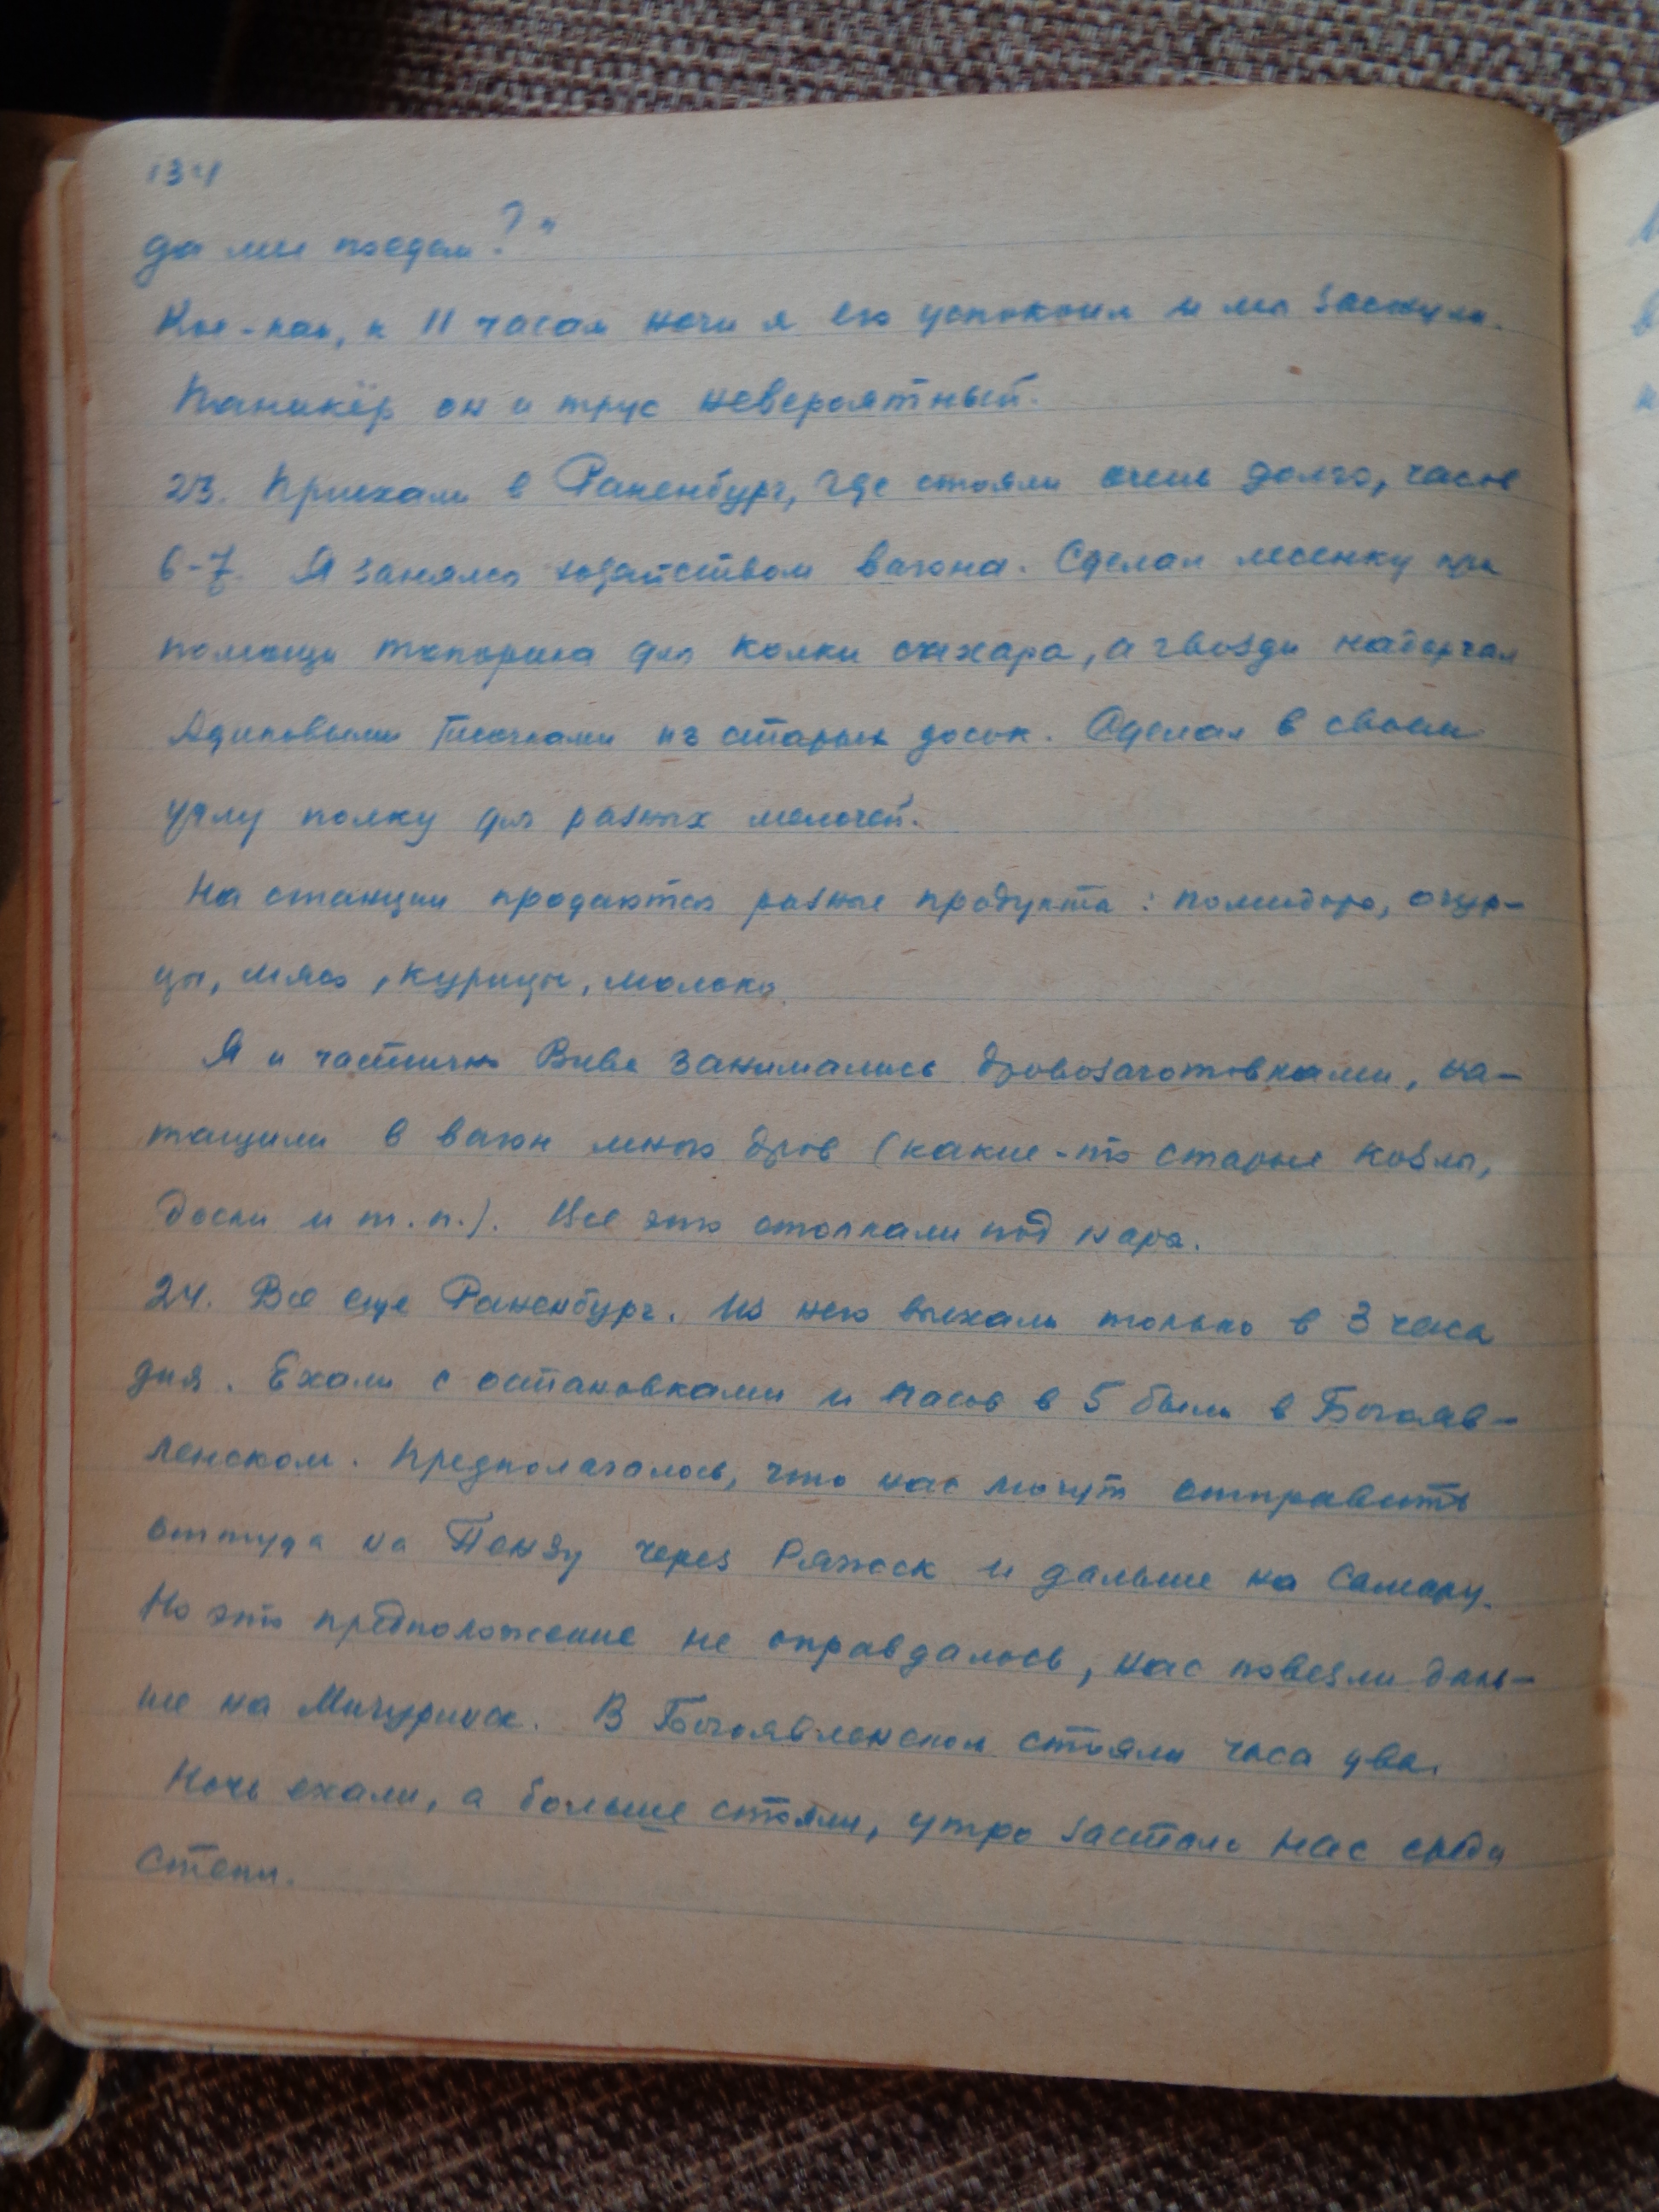 134
да мы поедем?"
Кое-как, к 11 часам ночи я его успокоил и мы заснули.
Паникёр он и трус невероятный.
23. Приехали в Раненбург, где стояли очень долго, часов
6-7. Я занялся хозяйством вагона. Сделал лесенку при
помощи топорика для колки сахара, а гвозди надергал
Адиковыми тисочками из старых досок. Сделал в своем
углу полку для разных мелочей.
На станции продаются разные продукты: помидоры, огур-
цы, мясо, курицы, молоко.
Я и частично Вива занимались дровозаготовками, на-
тащили в вагон много дров (какие-то старые козлы,
доски и т.п.). Все это столкали под нары.
24. Все еще Раненбург. Из него выехали только в 3 часа
дня. Ехали с остановками и часов в 5 были в Богояв-
ленском. Предполагалось, что нас могут отправить
оттуда на Пензу через Ряжск и дальше на Самару.
Но это предположение не оправдалось, нас повезли даль-
ше на Мичуринск. В Богоявленском стояли часа два.
Ночь ехали, а больше стояли, утро застало нас среди
степи.